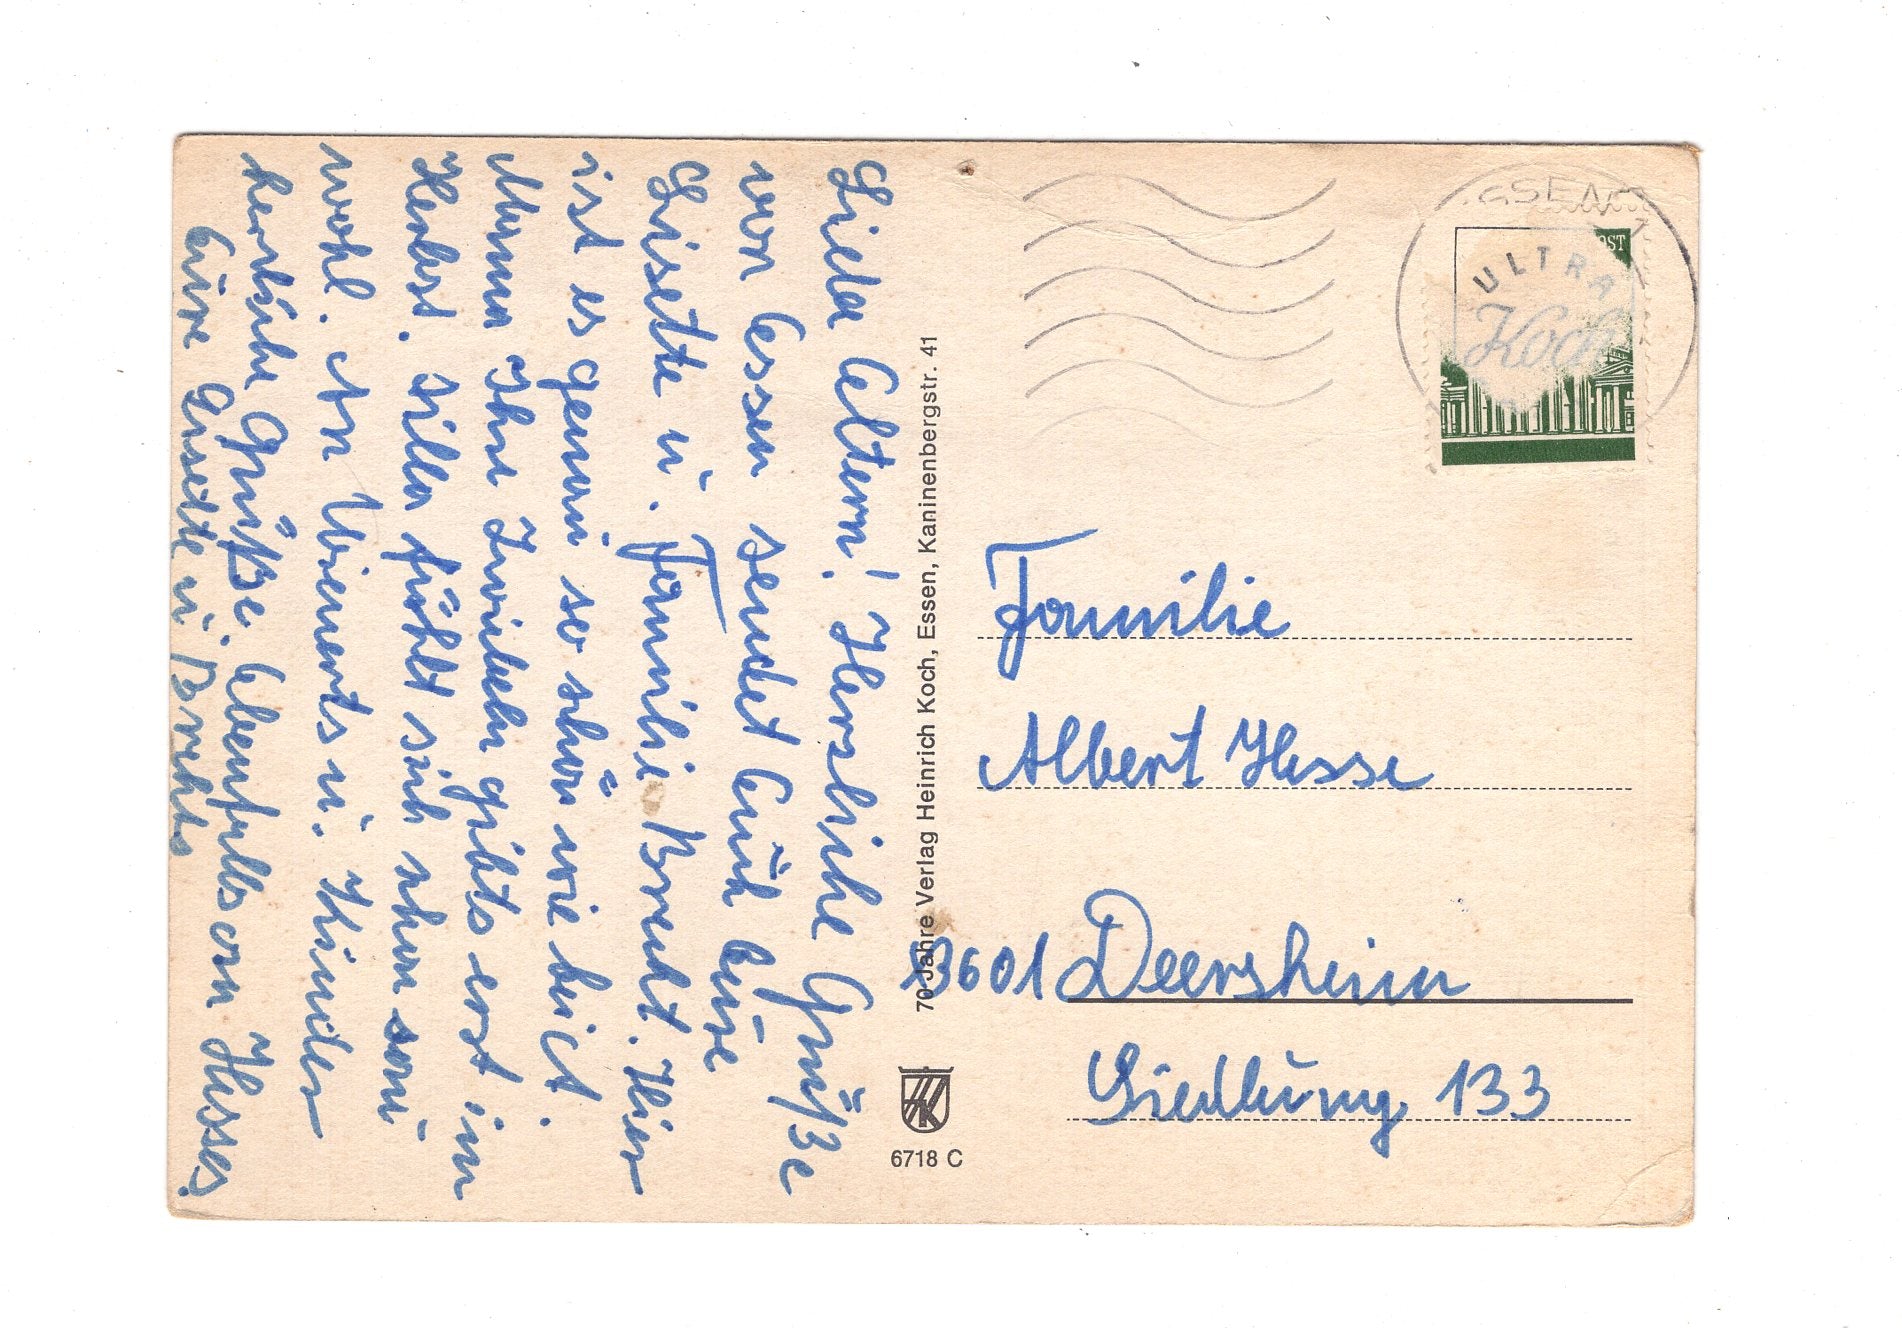 Liebe Eltern! Herzliche Grüße
von Essen sendet Euch Eure
Lisette u. Familie Brecht. Hier
ist es genau so schön wie dort.
Mama Ihre Zwiebeln gibts erst im
Herbst. Silla fühlt sich schon sau
wohl. An Wienerts u. Kinder
herzliche Grüße. Ebenfalls an Hesses.
Eure Lisette u. Brechts
70 Jahre Verlag Heinrich Koch, Essen, Kaninenbergstr. 41
6718 C
ULTRA
Koch
OST
Familie
Albert Hesse
3601 Deersheim
Siedlung 133